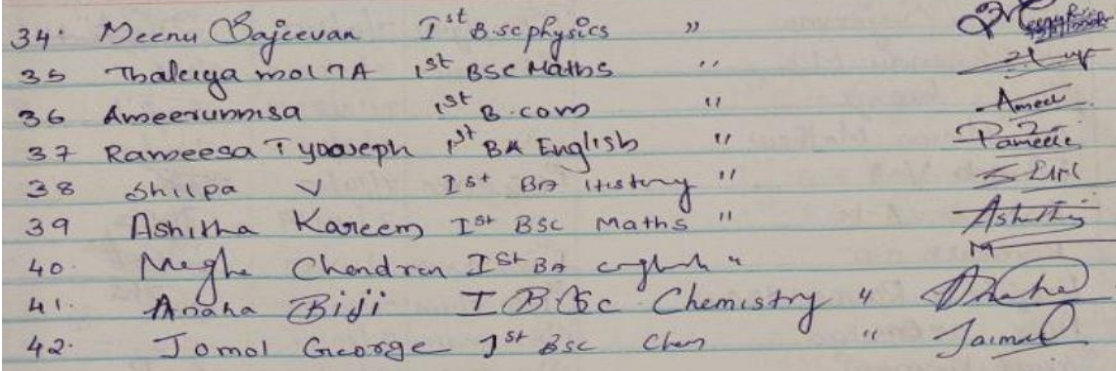 34. Meenu Sajeevan Ist B.sc physics "
35 Thaleiya mol TA 1st BSC Maths "
36 Ameerunnisa 1st B.com " Ameer
37 Rameesa Tyooseph 1st BA English "
38 Shilpa V Ist BA History "
39 Ashitha Kareem Ist BSC Maths "
40. Megha Chandran Ist BA english "
41. Anaha Biji I BSc Chemistry " Anaha
42. Jomol George 1st BSC Chem "